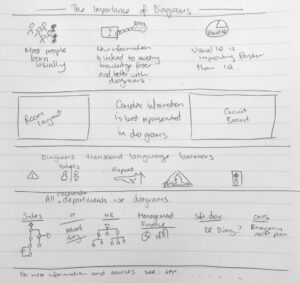 The Importance of Diagrams
Most people
learn
visually
New information
is linked to existing
knowledge faster
and better with
diagrams.
Visual IQ is
improving faster
than IQ
Room
Layout
Complex information
is best represented
in diagrams
Circuit
Board
Diagrams transcend language barriers
Toilets
Airport
corporate
All departments use diagrams.
Sales
IT
HR
Management
Finance
Sft dev.
ER Diag.?
For more information and sources see